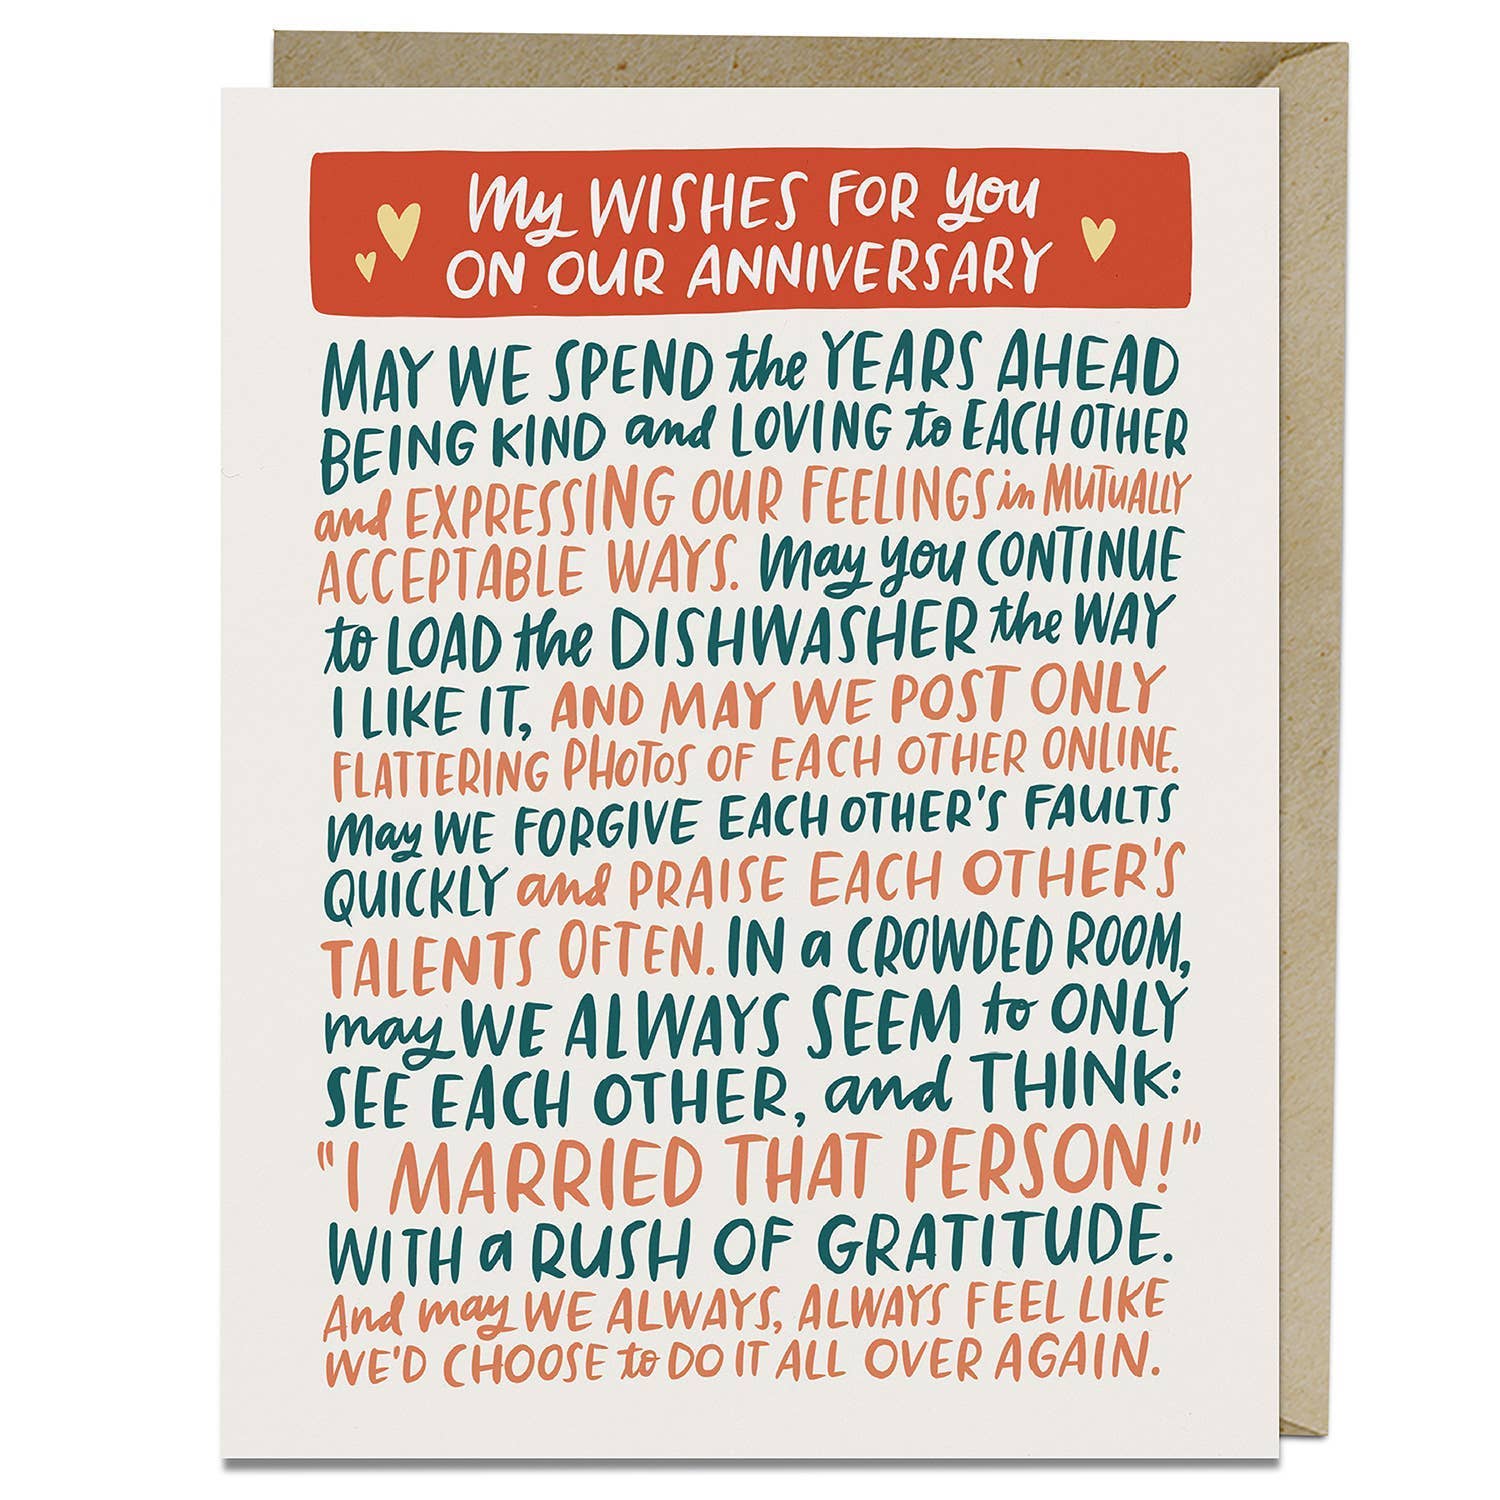 My WISHES FOR you
ON OUR ANNIVERSARY
MAY WE SPEND the YEARS AHEAD
BEING KIND and LOVING to EACH OTHER
and EXPRESSING OUR FEELINGS in MUTUALLY
ACCEPTABLE WAYS. May you CONTINUE
to LOAD the DISHWASHER the WAY
I LIKE IT, AND MAY WE POST ONLY
FLATTERING PHOTOS OF EACH OTHER ONLINE.
May WE FORGIVE EACH OTHER'S FAULTS
QUICKLY and PRAISE EACH OTHER'S
TALENTS OFTEN. IN a CROWDED ROOM,
may WE ALWAYS SEEM to ONLY
SEE EACH OTHER, and THINK:
"I MARRIED THAT PERSON!"
WITH a RUSH OF GRATITUDE.
And may WE ALWAYS, ALWAYS FEEL LIKE
WE'D CHOOSE to DO IT ALL OVER AGAIN.